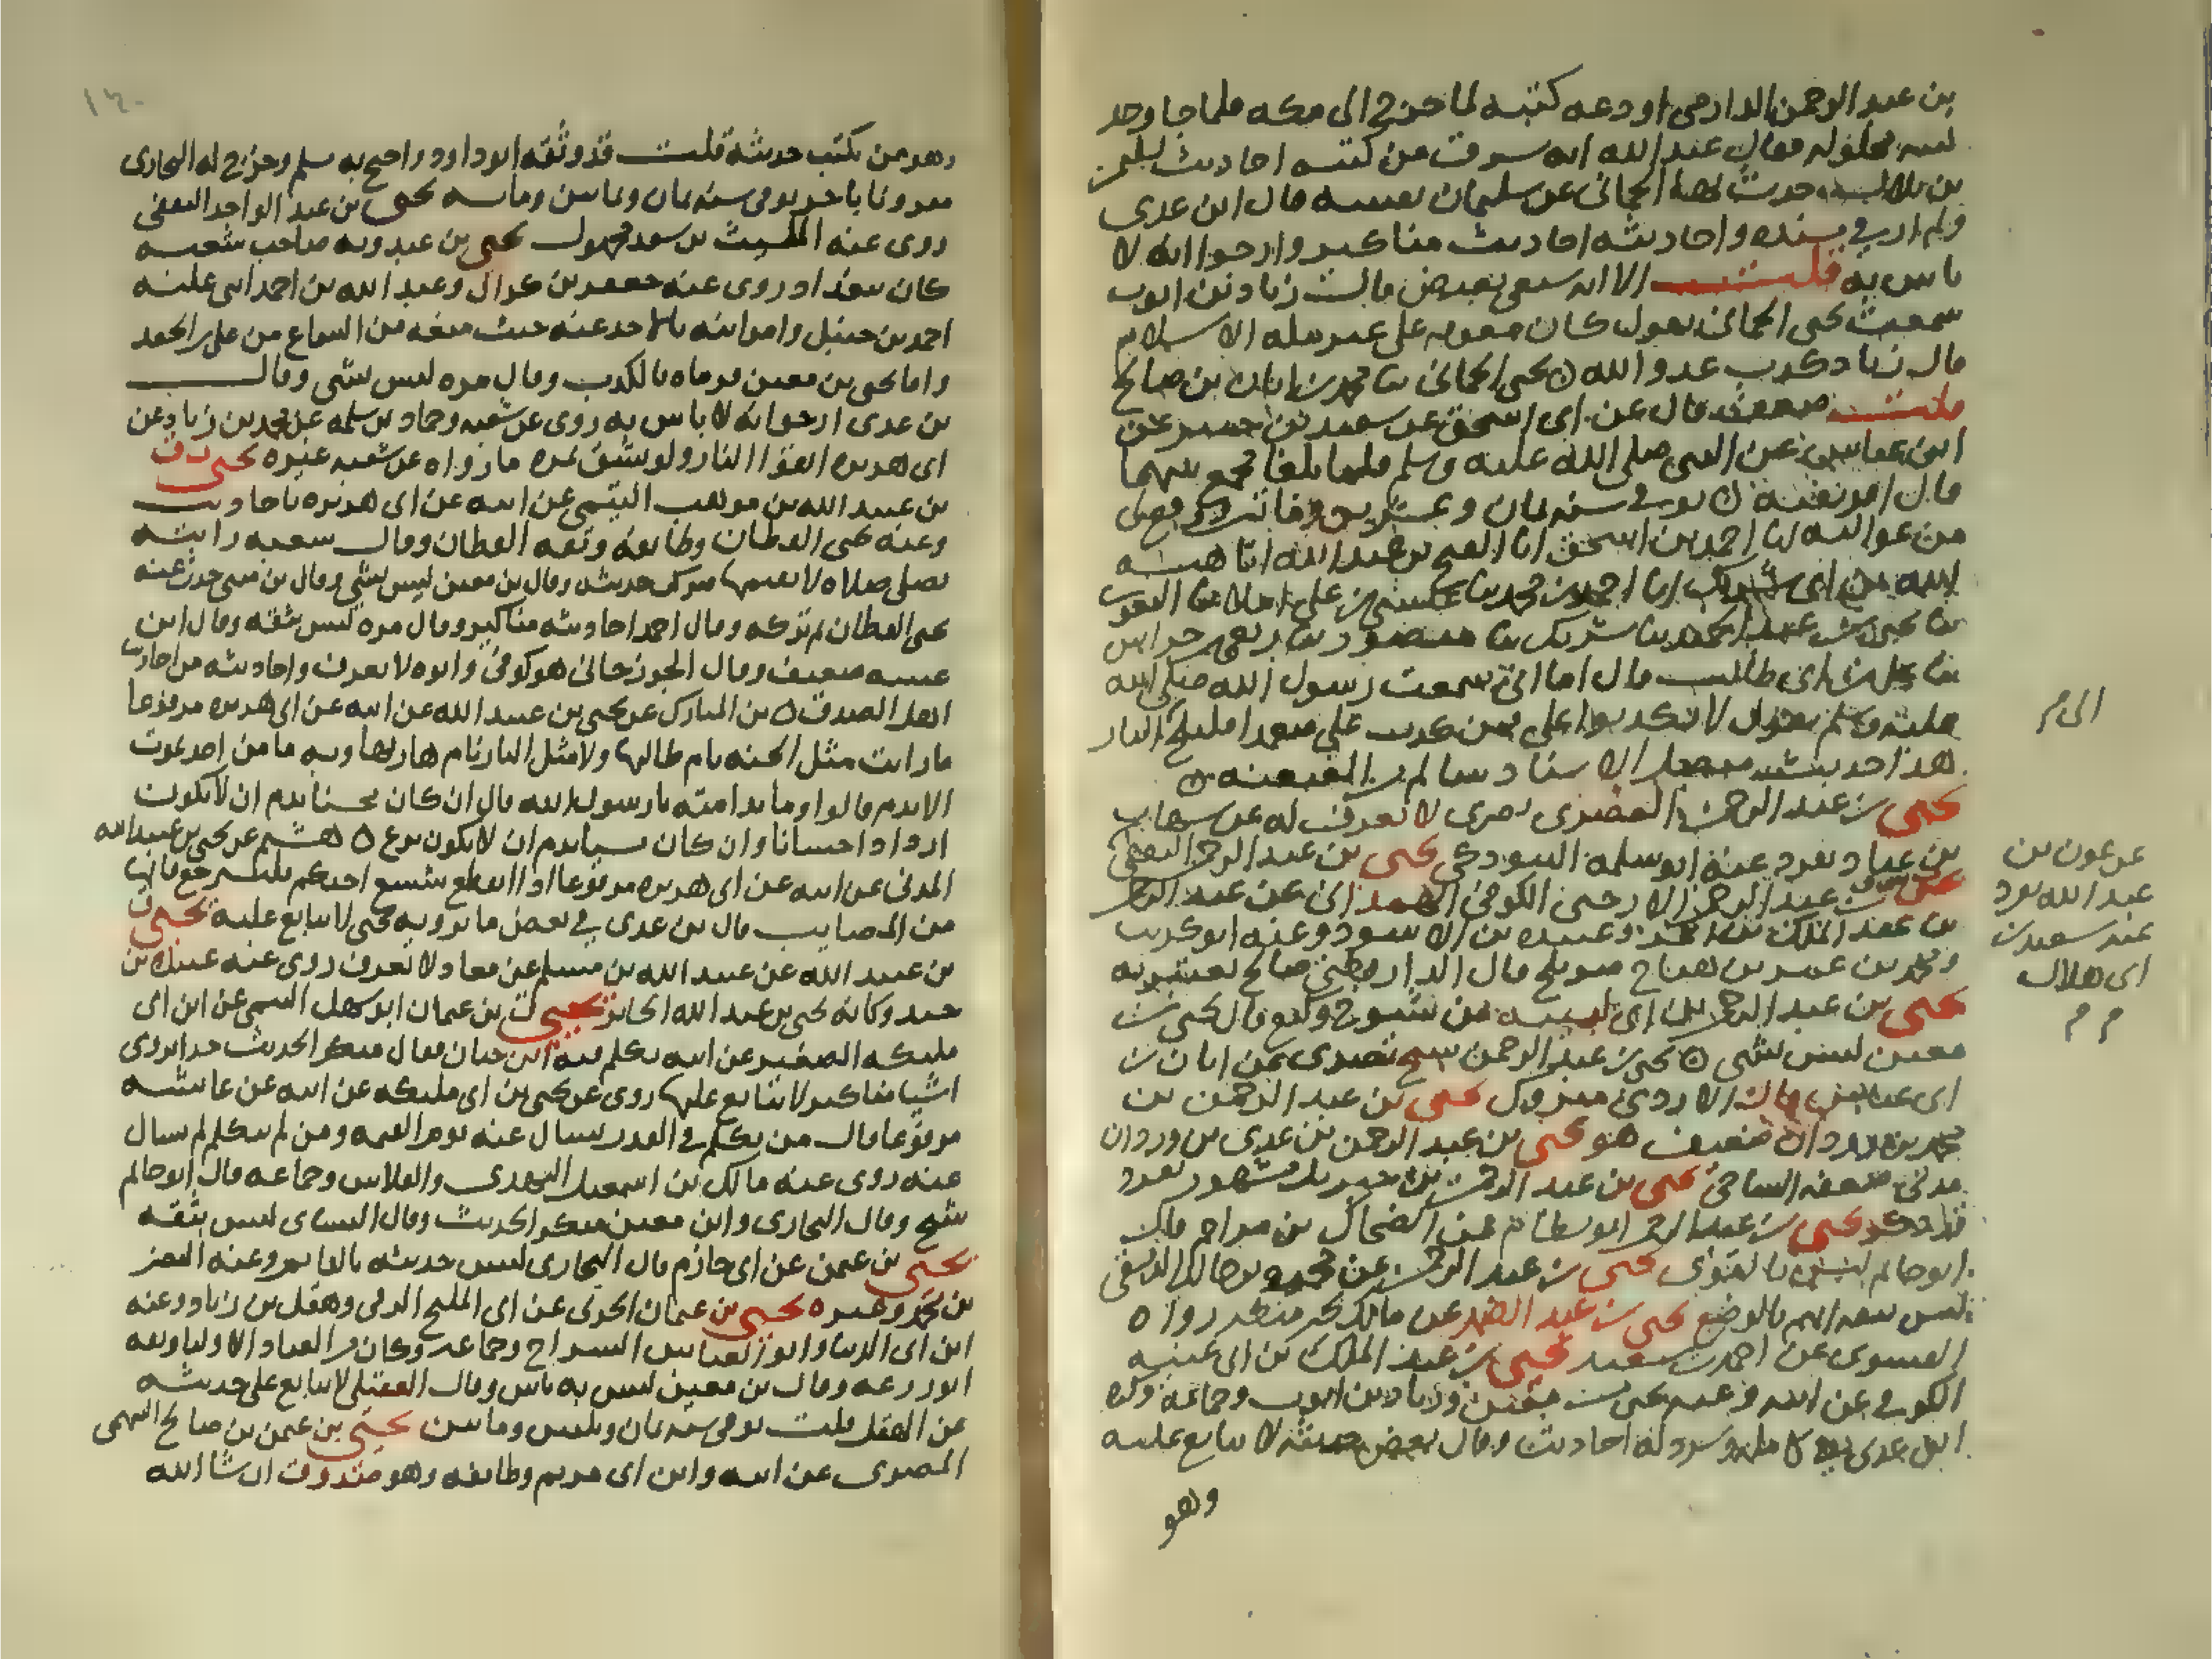 بن عبد الرحمن الدارمي اودعه كتبه لما خرج الى مكه فلما جا وجد
كتبه محلوله فقال عبد الله انه سرقت من كتبه احاديث سليمن
بن بلال حدث بها الحماني عن سليمان نفسه قال ابن عدي
ولم ار في مسنده واحاديثه احاديث مناكير وارجوا انه لا
باس به قلت الا انه شيعي بغيض قال زياد بن ايوب
سمعت يحيى الحماني يقول كان معويه على غير مله الاسلام
قال زياد كذب عدو الله يحيى الحماني ثنا محمد بن ابان بن صالح
قلت ضعيف قال عن ابي اسحق عن سعيد بن جبير عن
ابن عباس عن النبي صلى الله عليه وسلم فلما بلغا مجمع بينهما
توفي سنه ثمان وعشرين وماتين
من عواليه انا احمد بن اسحق انا الفتح بن عبد الله انا هبه
الله بن ابي شريك انا احمد بن محمد ثنا عيسى بن علي املا ثنا البغوي
ثنا يحيى بن عبد الحميد ثنا شريك ثنا منصور ثنا ربعي بن حراش
ثنا علي بن ابي طالب قال اما اني سمعت رسول الله صلى الله
عليه وسلم يقول لا تكذبوا علي فمن كذب علي متعمدا فليلج النار
هذا حديث متصل الاسناد سالم من العنعنه
يحيى بن عبد الرحمن العصري بصري لا يعرف له عن شهاب
بن عباد تفرد عنه ابو سلمه التبوذكي يحيى بن عبد الرحمن الثقفي
يحيى بن عبد الرحمن الارحبي الكوفي الهمداني عن عبد الله
بن عبد الملك بن ابجر وعبيده بن الاسود وعنه ابو كريب
ومحمد بن عمر بن هياج صويلح قال الدارقطني صالح يعتبر به
يحيى بن عبد الرحمن بن ابي لبيبه من شيوخ وكيع قال يحيى بن
معين ليس بشي يحيى بن عبد الرحمن شيخ بصري عن ابان بن
ابي عياش قال الازدي متروك يحيى بن عبد الرحمن بن
محمد بن وردان ضعيف هو يحيى بن عبد الرحمن بن عدي بن وردان
مدني ضعفه الساجي يحيى بن عبد الرحمن بن حيويل مشهور تفرد
يحيى بن عبد الرحمن ابو بسطام عن الضحاك بن مزاحم قال
ابو حاتم ليس بالقوي يحيى بن عبد الرحمن عن محمد بن خالد الدمشقي
ليس بثقه اتهم بالوضع يحيى بن عبد الصمد عن مالك بخبر منكر رواه
الفسوي عن احمد بن سعيد يحيى بن عبد الملك بن ابي غنيه
الكوفي عن ابيه وعنه يحيى بن معين وزياد بن ايوب وجماعه ذكره
ابن عدي في كامله وسرد له احاديث وقال بعض حديثه لا يتابع عليه
وهو
الى م
عن عون بن
عبد الله تفرد
عنه سعيد بن
ابي هلال
م م
١٤٠
وهو من يكتب حديثه قلت قد وثقه ابو داود واحتج به مسلم وخرج له البخاري
مقرونا باخر توفي سنه ثمان وثمانين ومايه يحيى بن عبد الواحد الثقفي
روى عنه الليث بن سعد مجهول يحيى بن عبدويه صاحب شعبه
كان ببغداد روى عنه جعفر بن كزال وعبد الله بن احمد اثنى عليه
احمد بن حنبل وامر ابنه بالاخذ عنه حيث منعه من السماع من علي بن الجعد
واما يحيى بن معين فرماه بالكذب وقال مره ليس بشي وقال
بن عدي ارجو انه لا باس به روى عن شعبه وحماد بن سلمه عن محمد بن زياد عن
ابي هريره اتقوا النار ولو بشق تمره ما رواه عن شعبه غيره يحيى ت ق
بن عبيد الله بن موهب التيمي عن ابيه عن ابي هريره باحاديث
وعنه يحيى القطان وطائفه وثقه القطان وقال شعبه رايته
يصلي صلاه لا يقيمها فترك حديثه وقال بن معين ليس بشي وقال بن مثنى حدث عنه
يحيى القطان ثم تركه وقال احمد احاديثه مناكير وقال مره ليس بثقه وقال ابن
عيينه ضعيف وقال الجوزجاني هو كوفي وابوه لا يعرف واحاديثه من احاديث
اهل الصدق بن المبارك عن يحيى بن عبيد الله عن ابيه عن ابي هريره مرفوعا
ما رايت مثل الجنه نام طالبها ولا مثل النار نام هاربها وبه ما من احد يموت
الا ندم قالوا وما ندامته يا رسول الله قال ان كان محسنا ندم ان لا يكون
ازداد احسانا وان كان مسيا ندم ان لا يكون نزع هشيم عن يحيى بن عبيد الله
المدني عن ابيه عن ابي هريره مرفوعا اذا انقطع شسع احدكم فليسترجع فانها
من المصايب قال بن عدي في بعض ما يرويه يحيى لا يتابع عليه يحيى
بن عبيد الله عن عبيد الله بن مسلم عن معاذ لا يعرف روى عنه عبيده بن
حميد وكانه يحيى بن عبد الله الجابر يحيى ق بن عثمان ابو سهل التيمي عن ابن ابي
مليكه الصغير عن ابيه تكلم فيه ابن حبان فقال منكر الحديث جدا يروي
اشيا مناكير لا يتابع عليها روى عن يحيى بن ابي مليكه عن ابيه عن عائشه
مرفوعا قال من تكلم في القدر يسال عنه يوم القيمه ومن لم يتكلم لم يسال
عنه روى عنه مالك بن اسمعيل النهدي والفلاس وجماعه قال ابو حاتم
شيخ وقال البخاري وابن معين منكر الحديث وقال النساي ليس بثقه
يحيى بن عثمن عن ابي حازم قال البخاري ليس حديثه بالقايم وعنه النضر
بن محمد وغيره يحيى بن عثمان الحربي عن ابي المليح الرقي وهقل بن زياد وعنه
ابن ابي الدنيا وابو العباس السراج وجماعه وكان من العباد الاوليا وثقه
ابو زرعه وقال بن معين ليس به باس وقال العقيلي لا يتابع على حديثه
عن الهقل قلت توفي سنه ثمان وثلثين وماتين يحيى بن عثمن بن صالح السهمي
المصري عن ابيه وابن ابي مريم وطائفه وهو صدوق ان شا الله